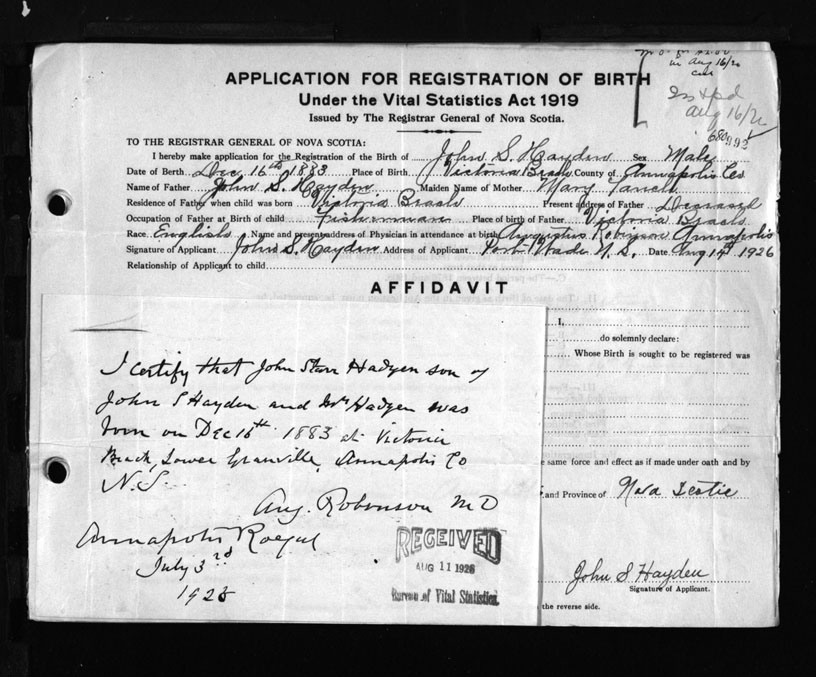 in Aug 16/26
APPLICATION FOR REGISTRATION OF BIRTH
Under the Vital Statistics Act 1919
Issued by The Registrar General of Nova Scotia.
Aug 16/26
TO THE REGISTRAR GENERAL OF NOVA SCOTIA:
I hereby make application for the Registration of the Birth of John S. Hayden Sex Male
Date of Berth Dec 16th 1883 Place of Birth Victoria Beach County of Annapolis Co
Name of Father John S. Hayden Maiden Name of Mother Mary
Residence of Father when child was born Victoria Beach Present address of Father Deceased
Occupation of Father at Birth of child Fisherman Place of birth of Father Victoria Beach
Race English Name and present address of Physician in attendance at birth Augustus Robinson Annapolis
Signature of Applicant John S. Hayden Address of Applicant Port Wade N. S. Date Aug 14th 1926
Relationship of Applicant to child
AFFIDAVIT
I,
do solemnly declare:
Whose Birth is sought to be registered was
I certify that John Starr Hadyen son of
John S Hayden and Mrs Hadyen was
born on Dec 16th 1883 at Victoria
Beach, Lower Granville, Annapolis Co
N.S.
Aug. Robinson MD
Annapolis Royal
July 3rd
RECEIVED
AUG 11 1926
Bureau of Vital Statistics
e same force and effect as if made under oath and by
and Province of Nova Scotia
John S Hayden
Signature of Applicant.
the reverse side.